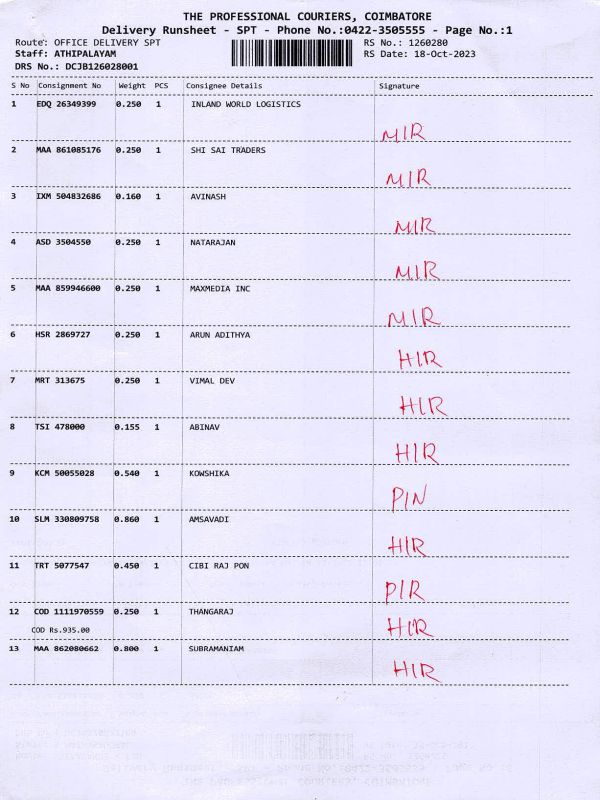 THE PROFESSIONAL COURIERS, COIMBATORE
Delivery Runsheet - SPT - Phone No.:0422-3505555 - Page No.:1
Route: OFFICE DELIVERY SPT RS No.: 1260280
Staff: ATHIPALAYAM RS Date: 18-Oct-2023
DRS No.: DCJB126028001
S No Consignment No Weight PCS Consignee Details Signature
1 EDQ 26349399 0.250 1 INLAND WORLD LOGISTICS
MIR
2 MAA 861085176 0.250 1 SHI SAI TRADERS
MIR
3 IXM 504832686 0.160 1 AVINASH
MIR
4 ASD 3504550 0.250 1 NATARAJAN
MIR
5 MAA 859946600 0.250 1 MAXMEDIA INC
MIR
6 HSR 2869727 0.250 1 ARUN ADITHYA
HIR
7 MRT 313675 0.250 1 VIMAL DEV
HIR
8 TSI 478000 0.155 1 ABINAV
HIR
9 KCM 50055028 0.540 1 KOWSHIKA
PIN
10 SLM 330809758 0.860 1 AMSAVADI
HIR
11 TRT 5077547 0.450 1 CIBI RAJ PON
PIR
12 COD 1111970559 0.250 1 THANGARAJ
HIR
COD Rs.935.00
13 MAA 862080662 0.800 1 SUBRAMANIAM
HIR